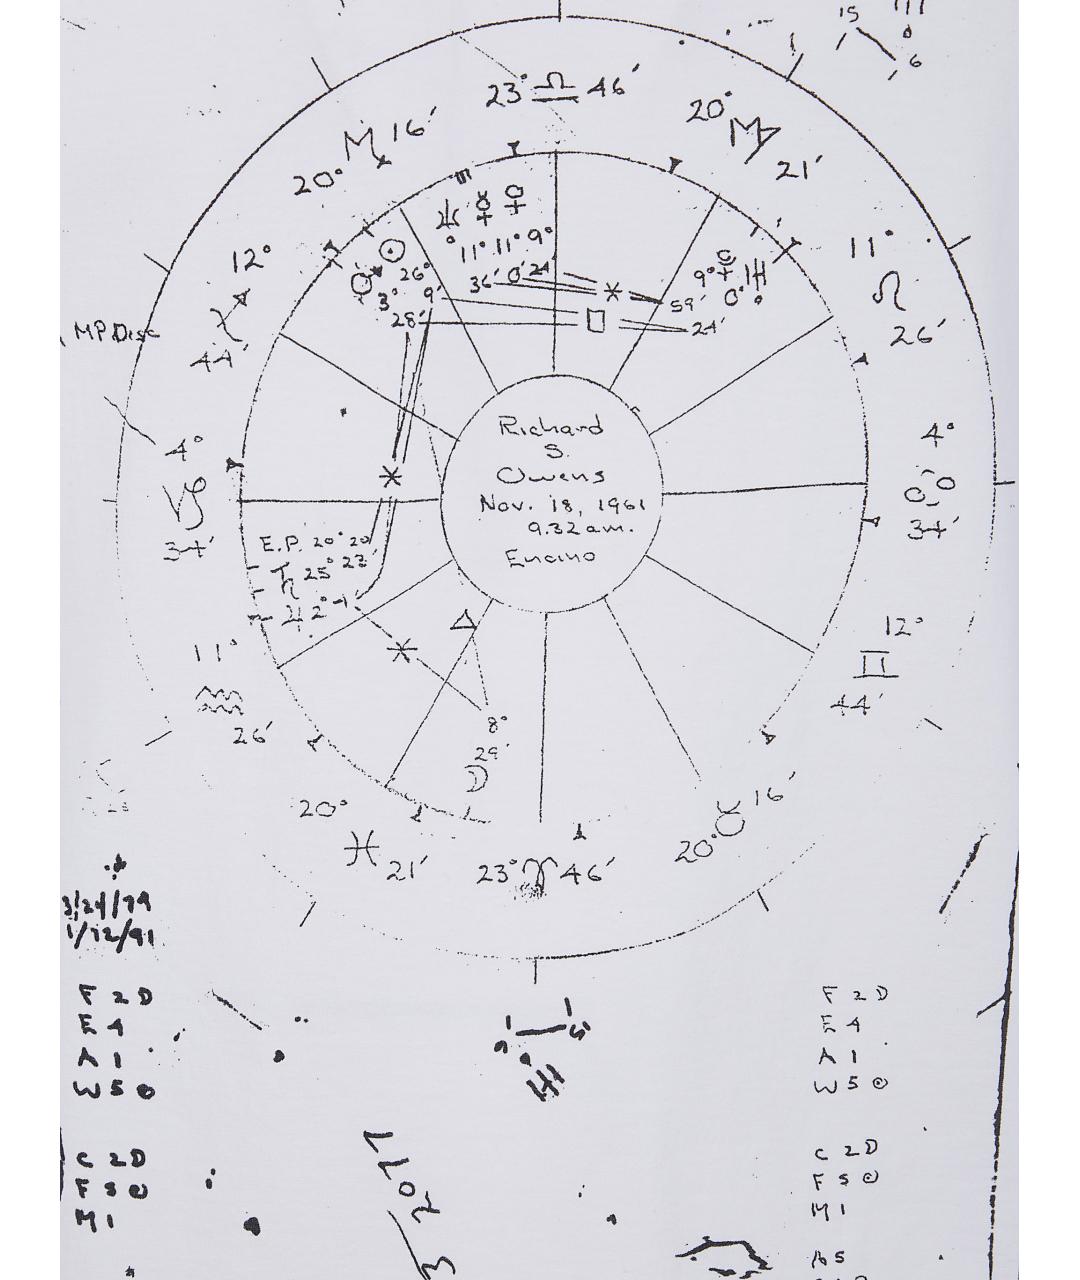 15
6
23° ♎ 46′
20° ♍ 21′
20° ♏ 16′
12° ♐ 44′
11° ♌ 26′
♆ ☿ ♀
11° 11° 9°
36′ 0′ 24′
☉
26°
9′
♂
3°
28′
9° 
59′
24′
MP.Disc
4° ♑ 34′
4° ♋ 34′
Richard
S.
Owens
Nov. 18, 1961
9:32 am.
Encino
E.P. 20° 20′
♄ 25° 23′
♃ 2°
11° ♒ 26′
12° ♊ 44′
8°
29′
☽
20° ♓ 21′
23° ♈ 46′
20° ♉ 16′
F 2 D
E 4
A 1
W 5 ☉
C 2 D
F 5 ☉
M 1
F 2 D
E 4
A 1
W 5 ☉
C 2 D
F 5 ☉
M 1